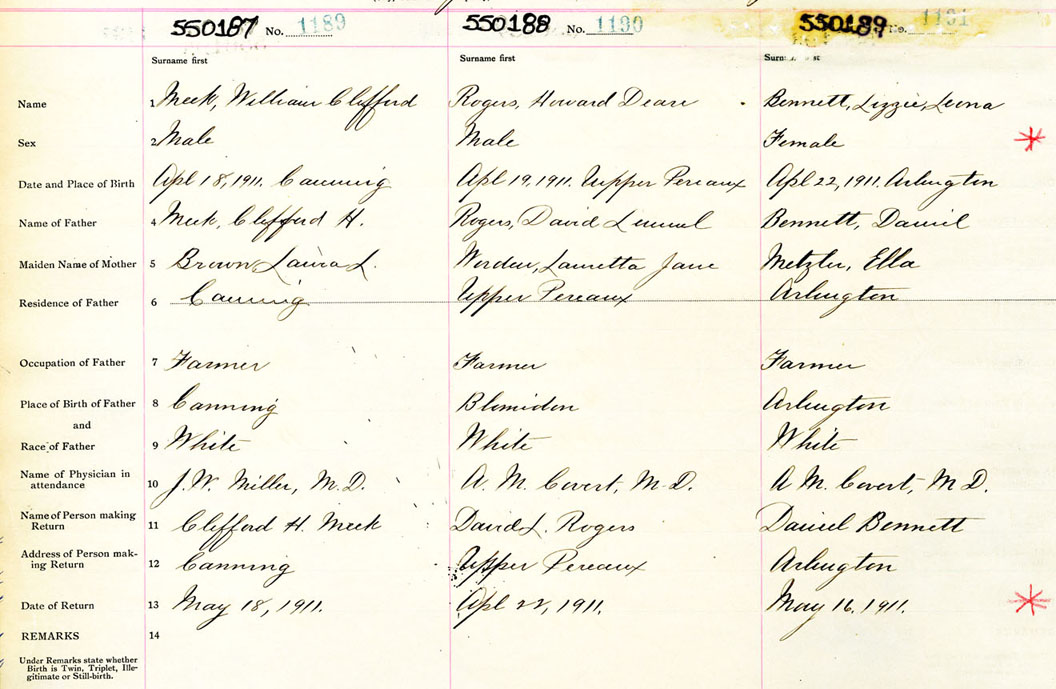 550187 No. 1189 550188 No. 1190 550189 No. 1191
Surname first Surname first Surname first
Name 1 Meek, William Clifford Rogers, Howard Deare Bennett, Lizzie, Leona
Sex 2 Male Male Female
Date and Place of Birth Apl 18, 1911. Canning Apl 19, 1911. Upper Pereaux Apl 22, 1911. Arlington
Name of Father 4 Meek, Clifford H. Rogers, David Lemuel Bennett, Daniel
Maiden Name of Mother 5 Brown, Laura L. Lauretta Jane Metzler, Ella
Residence of Father 6 Canning Upper Pereaux Arlington
Occupation of Father 7 Farmer Farmer Farmer
Place of Birth of Father 8 Canning Blomidon Arlington
and
Race of Father 9 White White White
Name of Physician in
attendance 10 J. W. Miller, M.D. A. M. Covert, M.D. A. M. Covert, M.D.
Name of Person making
Return 11 Clifford H. Meek David L. Rogers Daniel Bennett
Address of Person mak-
ing Return 12 Canning Upper Pereaux Arlington
Date of Return 13 May 18, 1911. Apl 22, 1911. May 16, 1911.
REMARKS 14
Under Remarks state whether
Birth is Twin, Triplet, Ille-
gitimate or Still-birth.